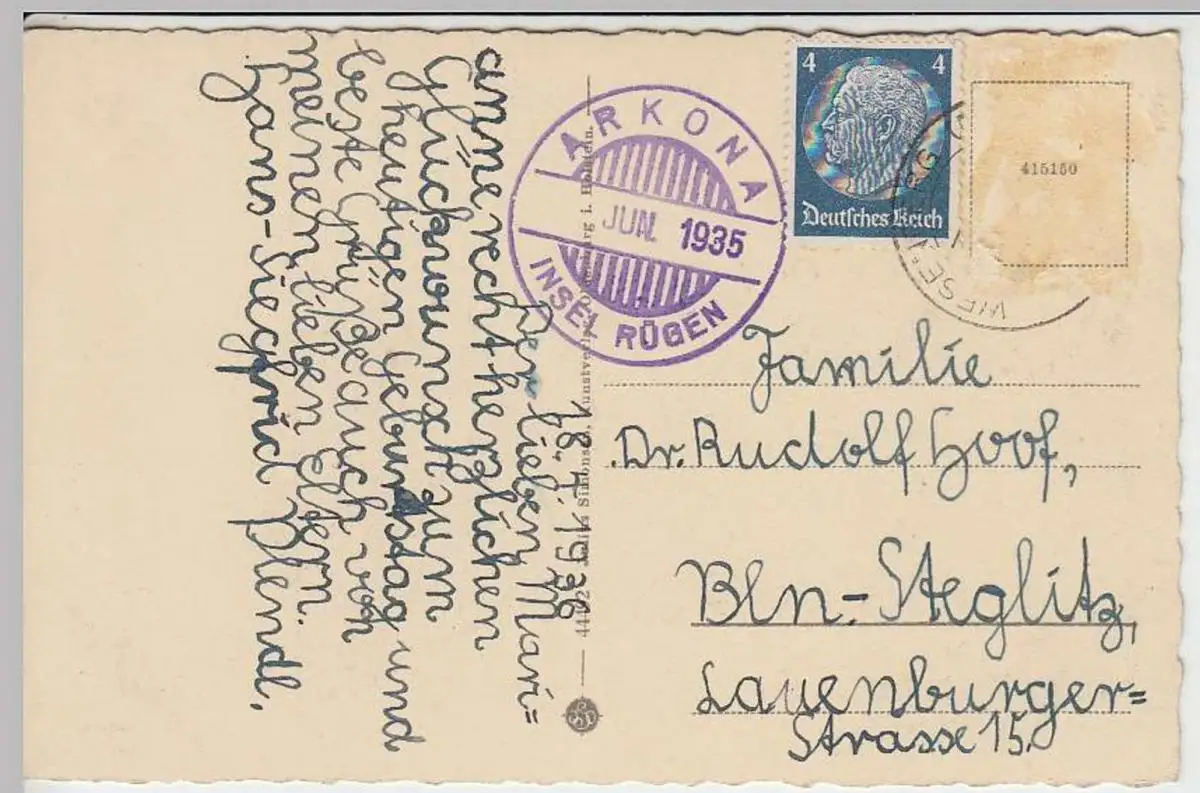 18.4.1938
Der lieben Mari=
anne recht herzlichen
Glückwunsch zum
heutigen Geburtstag und
beste Grüße auch von
meinen lieben Eltern.
Hans-Siegfried
ARKONA
JUN. 1935
INSEL RÜGEN
4 4
Deutsches Reich
415150
Familie
Dr. Rudolf Hoof,
Bln.-Steglitz,
Lauenburger=
Strasse 15.
Simonsen, Kunstverlag, i. Holstein.